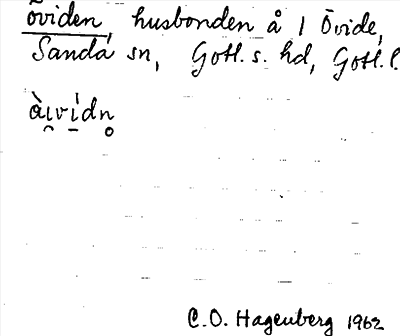 öviden, husbonden å 1 Övide,
Sanda sn, Gotl. s. hd, Gotl. l.
àı̯vı̠dn̥
C.O. Hagenberg 1962